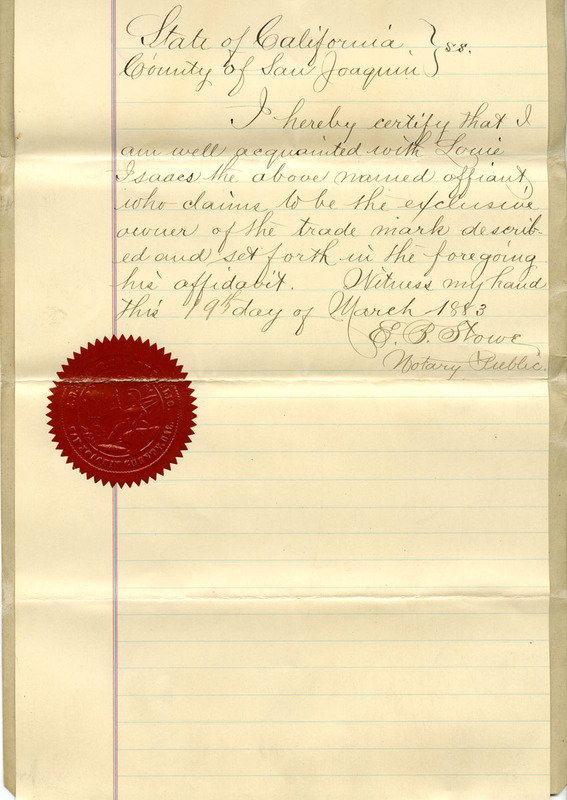 State of California } ss.
County of San Joaquin
I hereby certify that I
am well acquainted with Louie
Isaacs the above named affiant,
who claims to be the exclusive
owner of the trade mark describ-
ed and set forth in the foregoing
his affidavit. Witness my hand
this 19th day of March 1883
E. B. Stowe
Notary Public.
SAN JOAQUIN COUNTY, CAL.